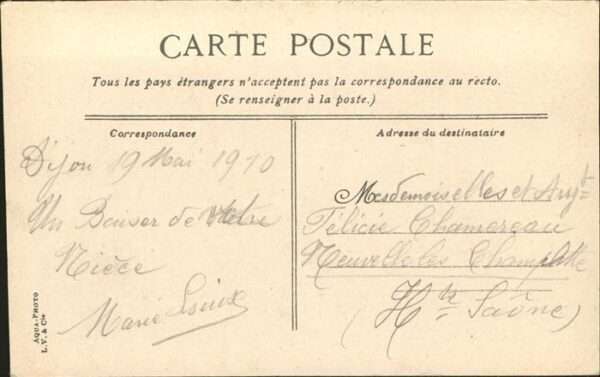 CARTE POSTALE
Tous les pays étrangers n'acceptent pas la correspondance au recto.
(Se renseigner à la poste.)
Correspondance
Adresse du destinataire
Dijon 19 Mai 1910
Un Baiser de Votre
Nièce
Marie
Mesdemoiselles et
Félicie Chamereau
Neuvelle les Champlitte
(Hte Saône)
AQUA-PHOTO
L.V. & Cie